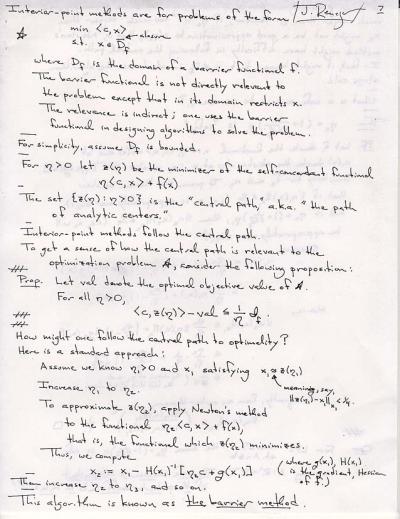 Interior-point methods are for problems of the form J. Renegar 3
min <c, x>
s.t. x ∈ D̄_f ← closure
where D_f is the domain of a barrier functional f.
The barrier functional is not directly relevant to
the problem except that in its domain restricts x.
The relevance is indirect; one uses the barrier
functional in designing algorithms to solve the problem.
For simplicity, assume D_f is bounded.
For η>0 let z(η) be the minimizer of the self-concordant functional
η<c,x> + f(x)
The set {z(η): η>0} is the "central path," a.k.a. "the path
of analytic centers."
Interior-point methods follow the central path.
To get a sense of how the central path is relevant to the
optimization problem, consider the following proposition:
Prop. Let val denote the optimal objective value of
For all η>0,
<c,z(η)> - val ≤ 1/η ϑ_f.
How might one follow the central path to optimality?
Here is a standard approach:
Assume we know η₁>0 and x₁ satisfying x₁ ≈ z(η₁)
meaning, say,
‖z(η₁)-x₁‖_x₁ < 1/4.
Increase η₁ to η₂.
To approximate z(η₂), apply Newton's method
to the functional η₂<c,x> + f(x),
that is, the functional which z(η₂) minimizes.
Thus, we compute
x₂ := x₁ - H(x₁)⁻¹[η₂c + g(x₁)]
(where g(x₁), H(x₁)
is the gradient, Hessian
of f.)
Then increase η₂ to η₃, and so on.
This algorithm is known as the barrier method.